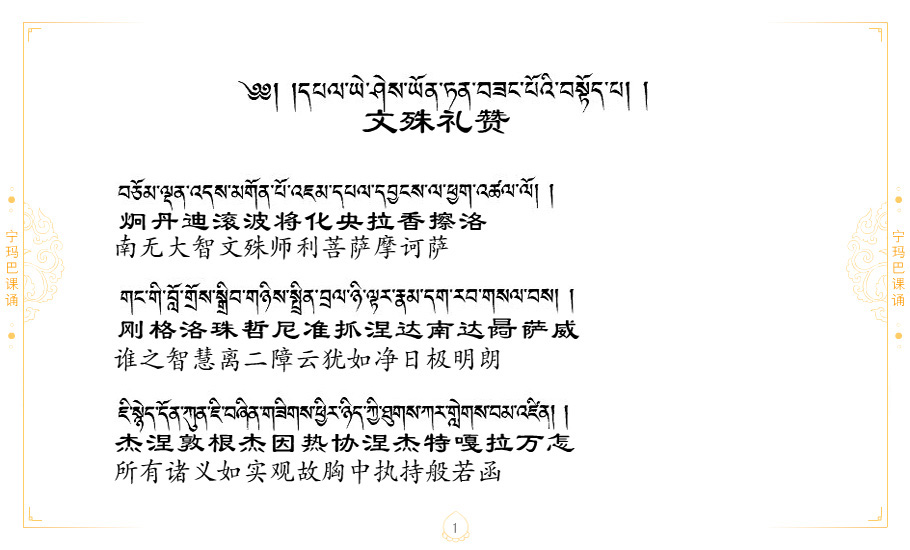 ༄༅། །དཔལ་ཡེ་ཤེས་ཡོན་ཏན་བཟང་པོའི་བསྟོད་པ། །
文殊礼赞
བཅོམ་ལྡན་འདས་མགོན་པོ་འཇམ་དཔལ་དབྱངས་ལ་ཕྱག་འཚལ་ལོ། །
炯丹迪滚波将化央拉香擦洛
南无大智文殊师利菩萨摩诃萨
གང་གི་བློ་གྲོས་སྒྲིབ་གཉིས་སྤྲིན་བྲལ་ཉི་ལྟར་རྣམ་དག་རབ་གསལ་བས། །
刚格洛珠哲尼准抓涅达南达萨威
谁之智慧离二障云犹如净日极明朗
ཇི་སྙེད་དོན་ཀུན་ཇི་བཞིན་གཟིགས་ཕྱིར་ཉིད་ཀྱི་ཐུགས་ཀར་གླེགས་བམ་འཛིན། །
杰涅敦根杰因热协涅杰特嘎拉万怎
所有诸义如实观故胸中执持般若函
宁玛巴课诵
宁玛巴课诵
1